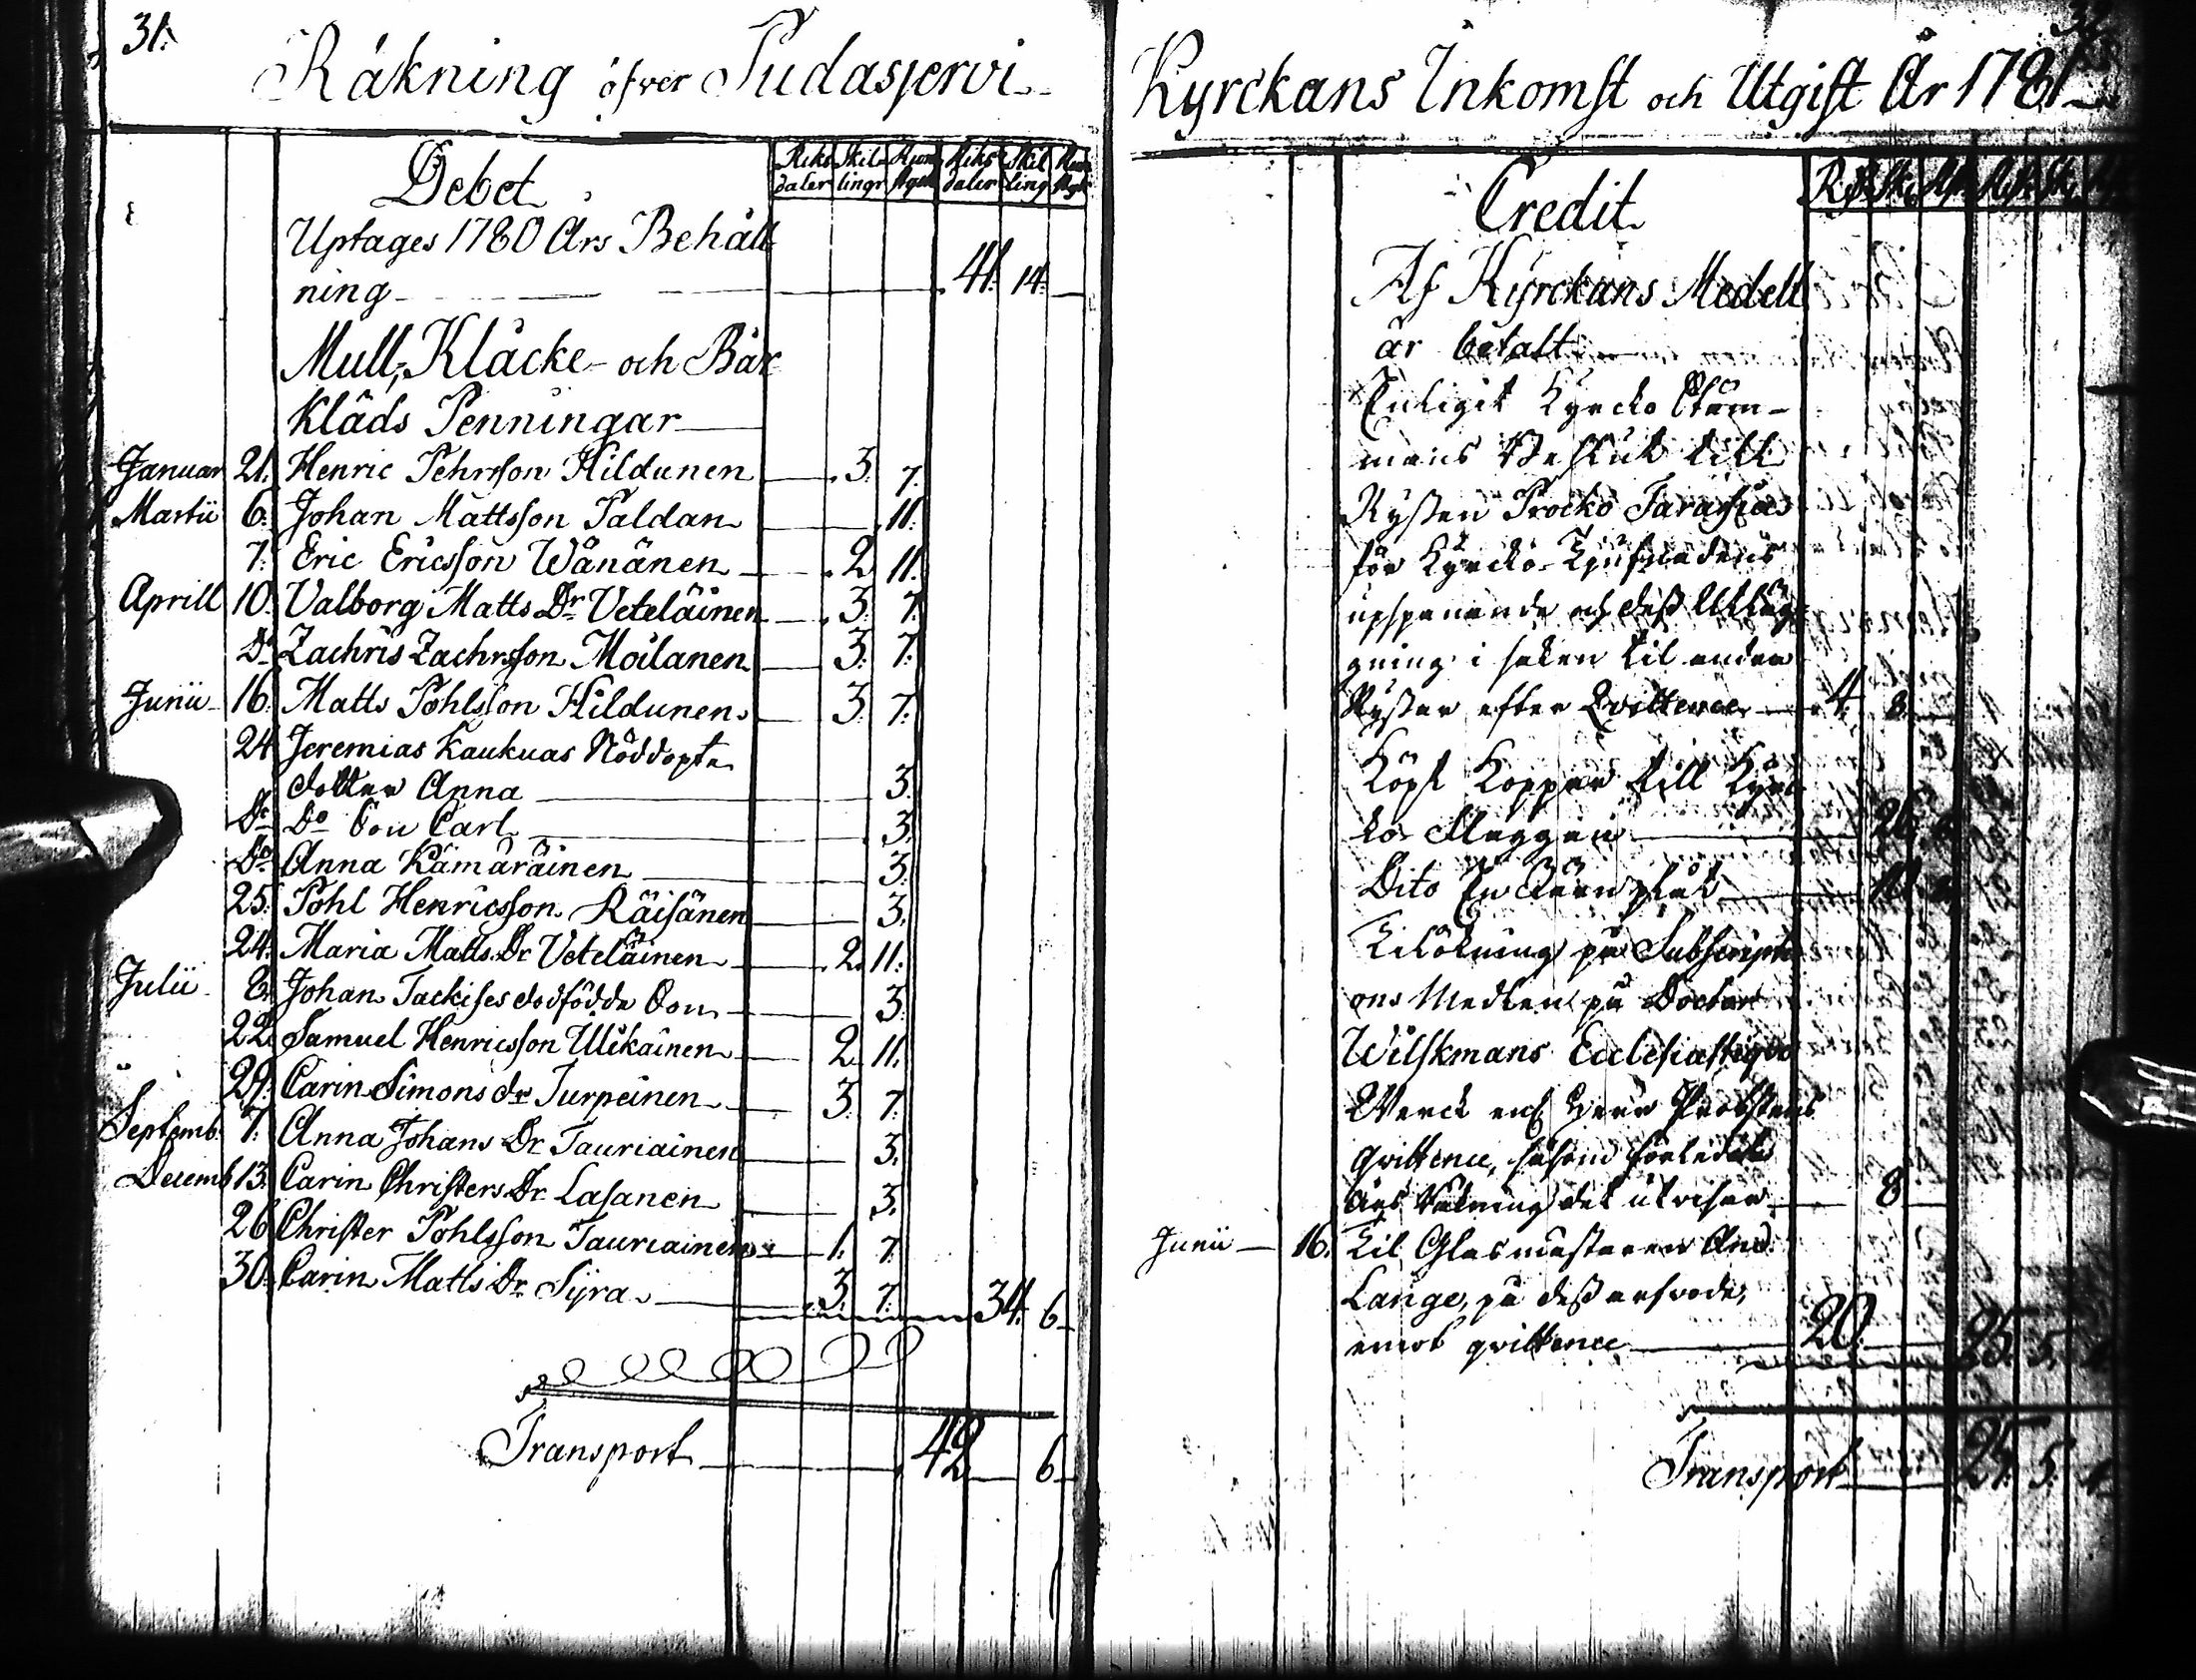 31.
Räkning öfver Pudasjervi
Debet
Riks daler Skil lingr Run stycke Riks daler Skil ling Run styk
Uptages 1780 Års Behåll
ning 41. 14.
Mull, Kläcke- och Bår
Kläds Penningar
Januar 21. Henric Pehrsson Hildunen 3. 7.
Martii 6. Johan Mattsson Paldan 11.
7. Eric Ericsson Wänänen 2. 11.
Aprill 10. Valborg Matts Dr Veteläinen 3. 7.
Do Zachris Zachrsson Moilanen 3. 7.
Junii 16. Matts Pohlsson Hildunen 3. 7.
24 Jeremias Kaukuas Nöddopte
dotter Anna 3.
Do Do Son Carl 3.
Do Anna Kämäräinen 3.
25. Pohl Henricsson Räisänen 3.
24. Maria Matts Dr Veteläinen 2. 11.
Julii 8. Johan Tackises dödfödde Son 3.
22. Samuel Henricsson Ulikainen 2. 11.
29. Carin Simons dr Turpeinen 3. 7.
Septemb. 7. Anna Johans Dr Tauriainen 3.
Decemb 13. Carin Christers Dr Lasanen 3.
26 Christer Pohlsson Tauriainen 1. 7.
30. Carin Matts Dr Syra 3. 7. 34. 6
Transport 42 6
Kyrckans Inkomst och Utgift År 1781
Credit
Af Kyrckans Medell
är betalt
Enligit Kyrcko Stäm-
mans Beslut till
Ryssen Procko Tarasies
för Kyrcko-Tjufnadens
upspanande och dess
i saken til andra
Ryssar efter Qvittence 4. 8.
Köpt Koppar till Kyrc
ko
Dito En
på Subscripti
ons Medlen på Doctor
Wilskmans Ecclesiastique
Werck enl Herr Probstens
qvittence, såsom förledit
Års Räkning det utvisar 8
Junii 16. Til Glasmästaren And.
Lange, på dess arfvode,
emot qvittence 20. 25. 5.
Transport 25. 5.